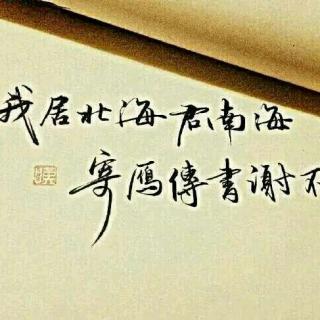 我居北海君南海
寄雁傳書谢不